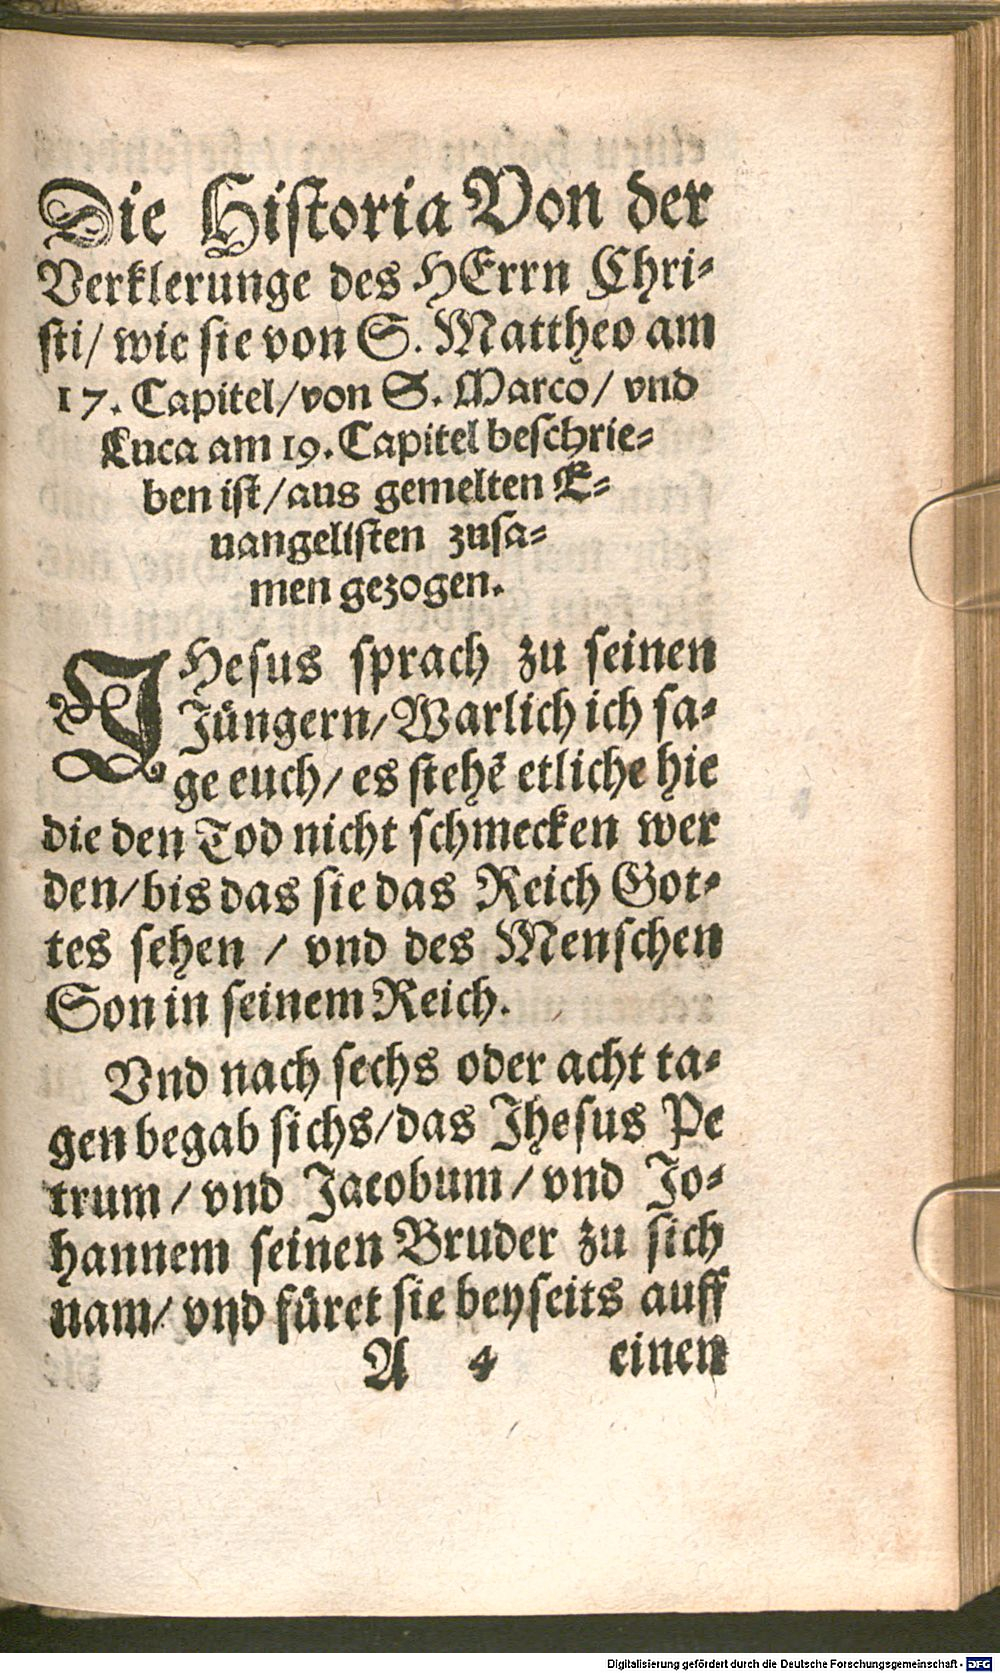 Die Historia Von der
Verklerunge des HErrn Chri-
sti/ wie sie von S. Mattheo am
17. Capitel/von S. Marco/ vnd
Luca am 19. Capitel beschrie-
ben ist/aus gemelten E-
uangelisten zusa-
men gezogen.
JHesus sprach zu seinen
Jüngern/Warlich ich sa-
ge euch/ es stehẽ etliche hie
die den Tod nicht schmecken wer
den/bis das sie das Reich Got-
tes sehen / vnd des Menschen
Son in seinem Reich.
Vnd nach sechs oder acht ta-
gen begab sichs/das Jhesus Pe
trum / vnd Jacobum / vnd Jo-
hannem seinen Bruder zu sich
nam/ vnd füret sie beyseits auff
A 4 einen
Digitalisierung gefördert durch die Deutsche Forschungsgemeinschaft - DFG